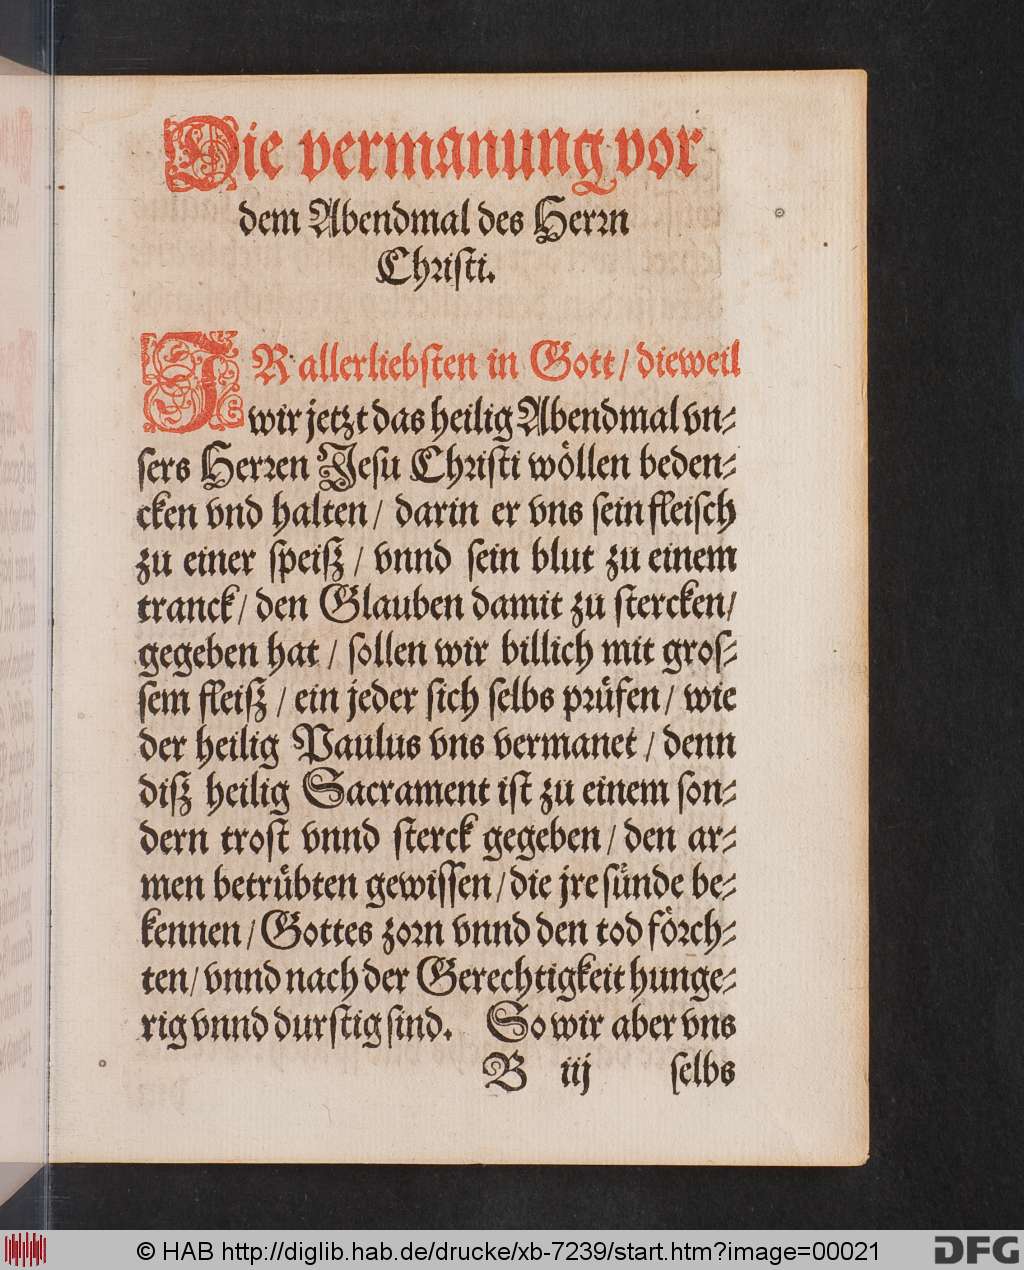 Die vermanung vor
dem Abendmal des Herrn
Christi.
IR allerliebsten in Gott / dieweil
wir jetzt das heilig Abendmal vn⸗
sers Herren Jesu Christi wöllen beden⸗
cken vnd halten / darin er vns sein fleisch
zu einer speiß / vnnd sein blut zu einem
tranck / den Glauben damit zu stercken /
gegeben hat / sollen wir billich mit gros⸗
sem fleiß / ein jeder sich selbs prüfen / wie
der heilig Paulus vns vermanet / denn
diß heilig Sacrament ist zu einem son⸗
dern trost vnnd sterck gegeben / den ar⸗
men betrübten gewissen / die jre sünde be⸗
kennen / Gottes zorn vnnd den tod förch⸗
ten / vnnd nach der Gerechtigkeit hunge⸗
rig vnnd durstig sind. So wir aber vns
B iij selbs
© HAB http://diglib.hab.de/drucke/xb-7239/start.htm?image=00021
DFG